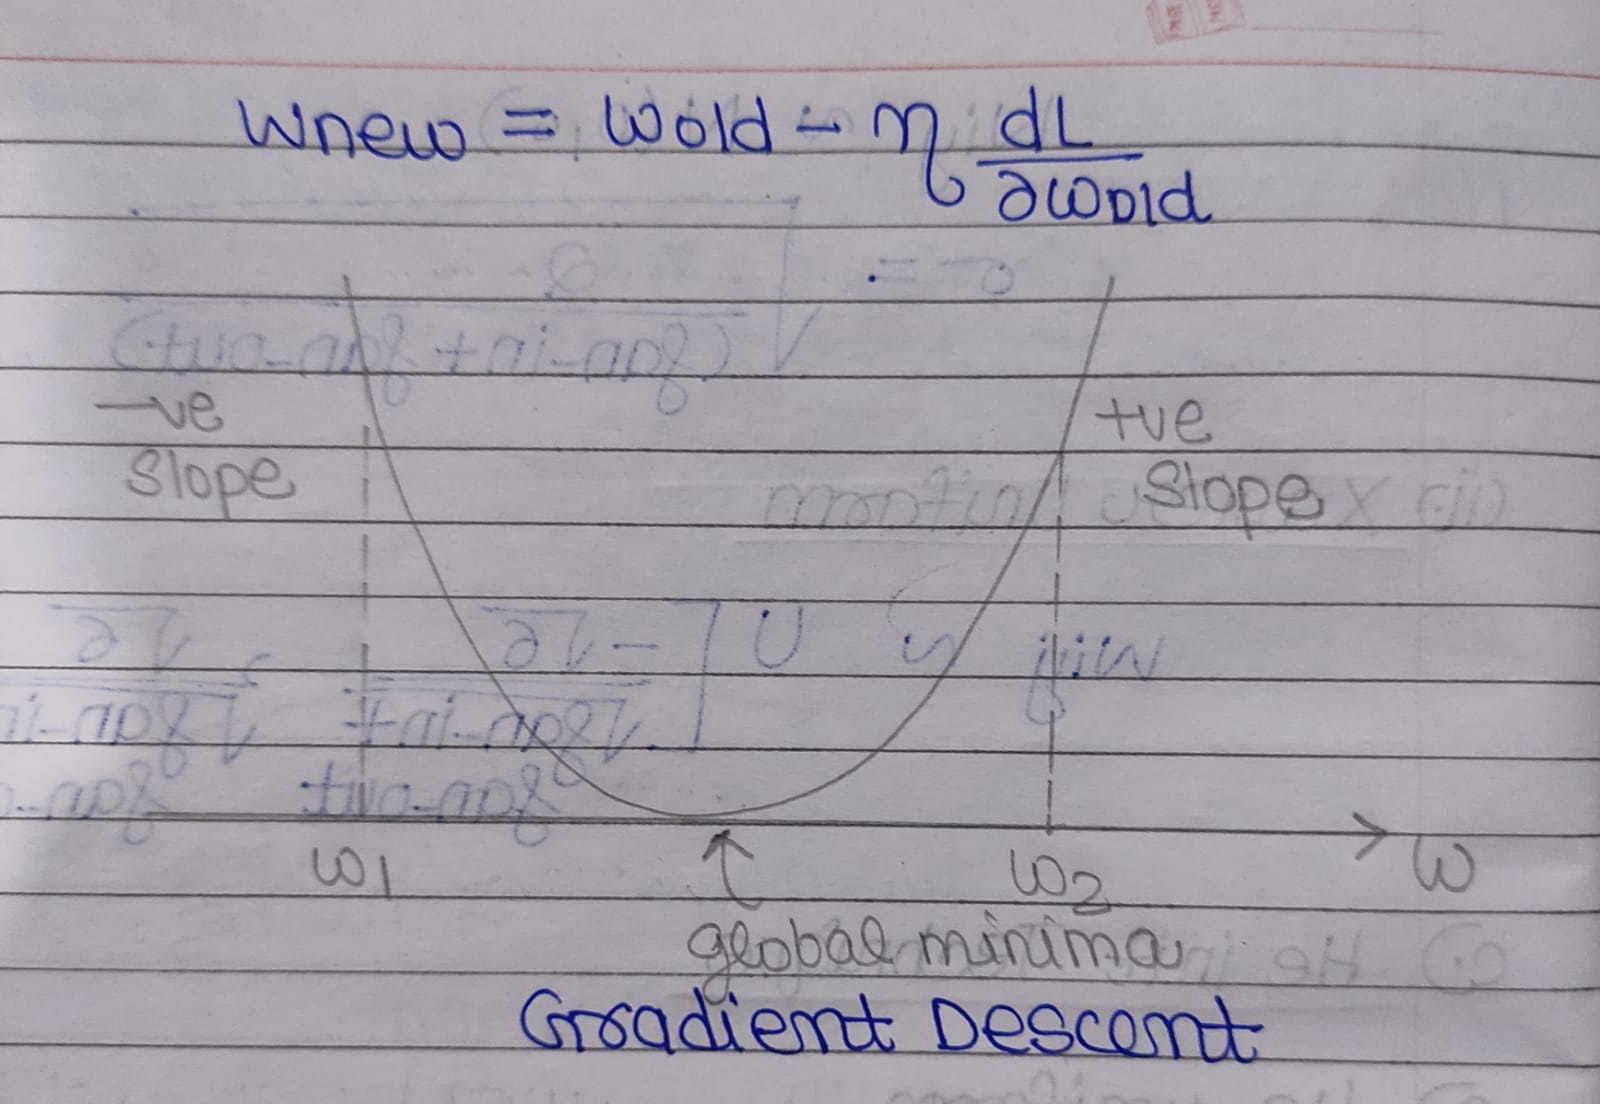 Wnew = Wold - η dL/∂Wold
-ve
Slope
+ve
Slope
ω1
ω2
ω
global minima
Gradient Descent